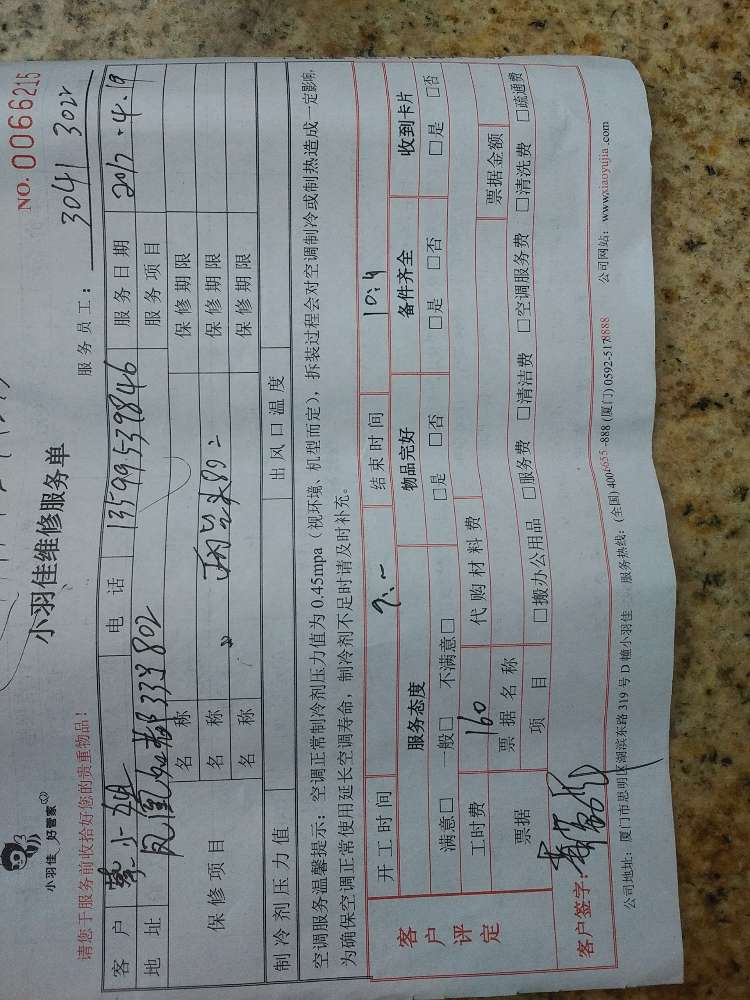 小羽佳 好管家
小羽佳维修服务单
NO. 0066215
请您于服务前收拾好您的贵重物品!
服务员工: 3041 3022
客户 小姐 电话 13599539846 服务日期 2017.4.19
地址 凤凰 802 服务项目
保修项目 名称 保修期限
名称 保修期限
名称 保修期限
制冷剂压力值 出风口温度
空调服务温馨提示:空调正常制冷剂压力值为0.45mpa(视环境、机型而定),拆装过程会对空调制冷或制热造成一定影响,
为确保空调正常使用延长空调寿命,制冷剂不足时请及时补充。
开工时间 结束时间
客户评定 服务态度 物品完好 备件齐全 收到卡片
满意□ 一般□ 不满意□ □是 □否 □是 □否 □是 □否
工时费 160 代购材料费
票据 票据名称 票据金额
项目 □搬办公用品 □服务费 □清洁费 □空调服务费 □清洗费 □疏通费
客户签字:
公司地址:厦门市思明区湖滨东路319号D幢小羽佳 服务热线:(全国)4006655-888 (厦门)0592-5178888 公司网站:www.xiaoyujia.com